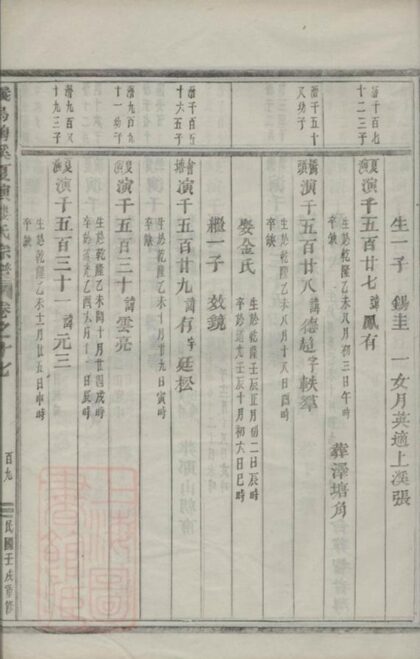 生一子 錫圭 一女月英適上溪張
潛千百七十二三子
夏演 演千五百廿七 諱鳳有
生於乾隆乙未八月初三日午時
卒缺
葬澤塘角
潛千五十又幼子
橋頭 演千五百廿八 諱德超字軼羣
生於乾隆乙未八月十八日酉時
娶金氏
生於乾隆壬辰五月初二日辰時
卒於道光壬辰十月初六日巳時
繼一子 效鏡
潛千百五十六五子
演千五百廿九 諱有字廷松
生於乾隆乙未十月廿九日寅時
卒缺
潛九百九十一幼子
夏演 演千五百三十 諱雲亮
生於乾隆乙未閏十月廿四戌時
卒於道光乙酉六月十一日辰時
潛九百又十九三子
夏演 演千五百三十一 諱元三
生於乾隆乙未十一月廿五日申時
卒缺
夏演樓氏宗譜 卷之十七
百九
民國壬戌重修